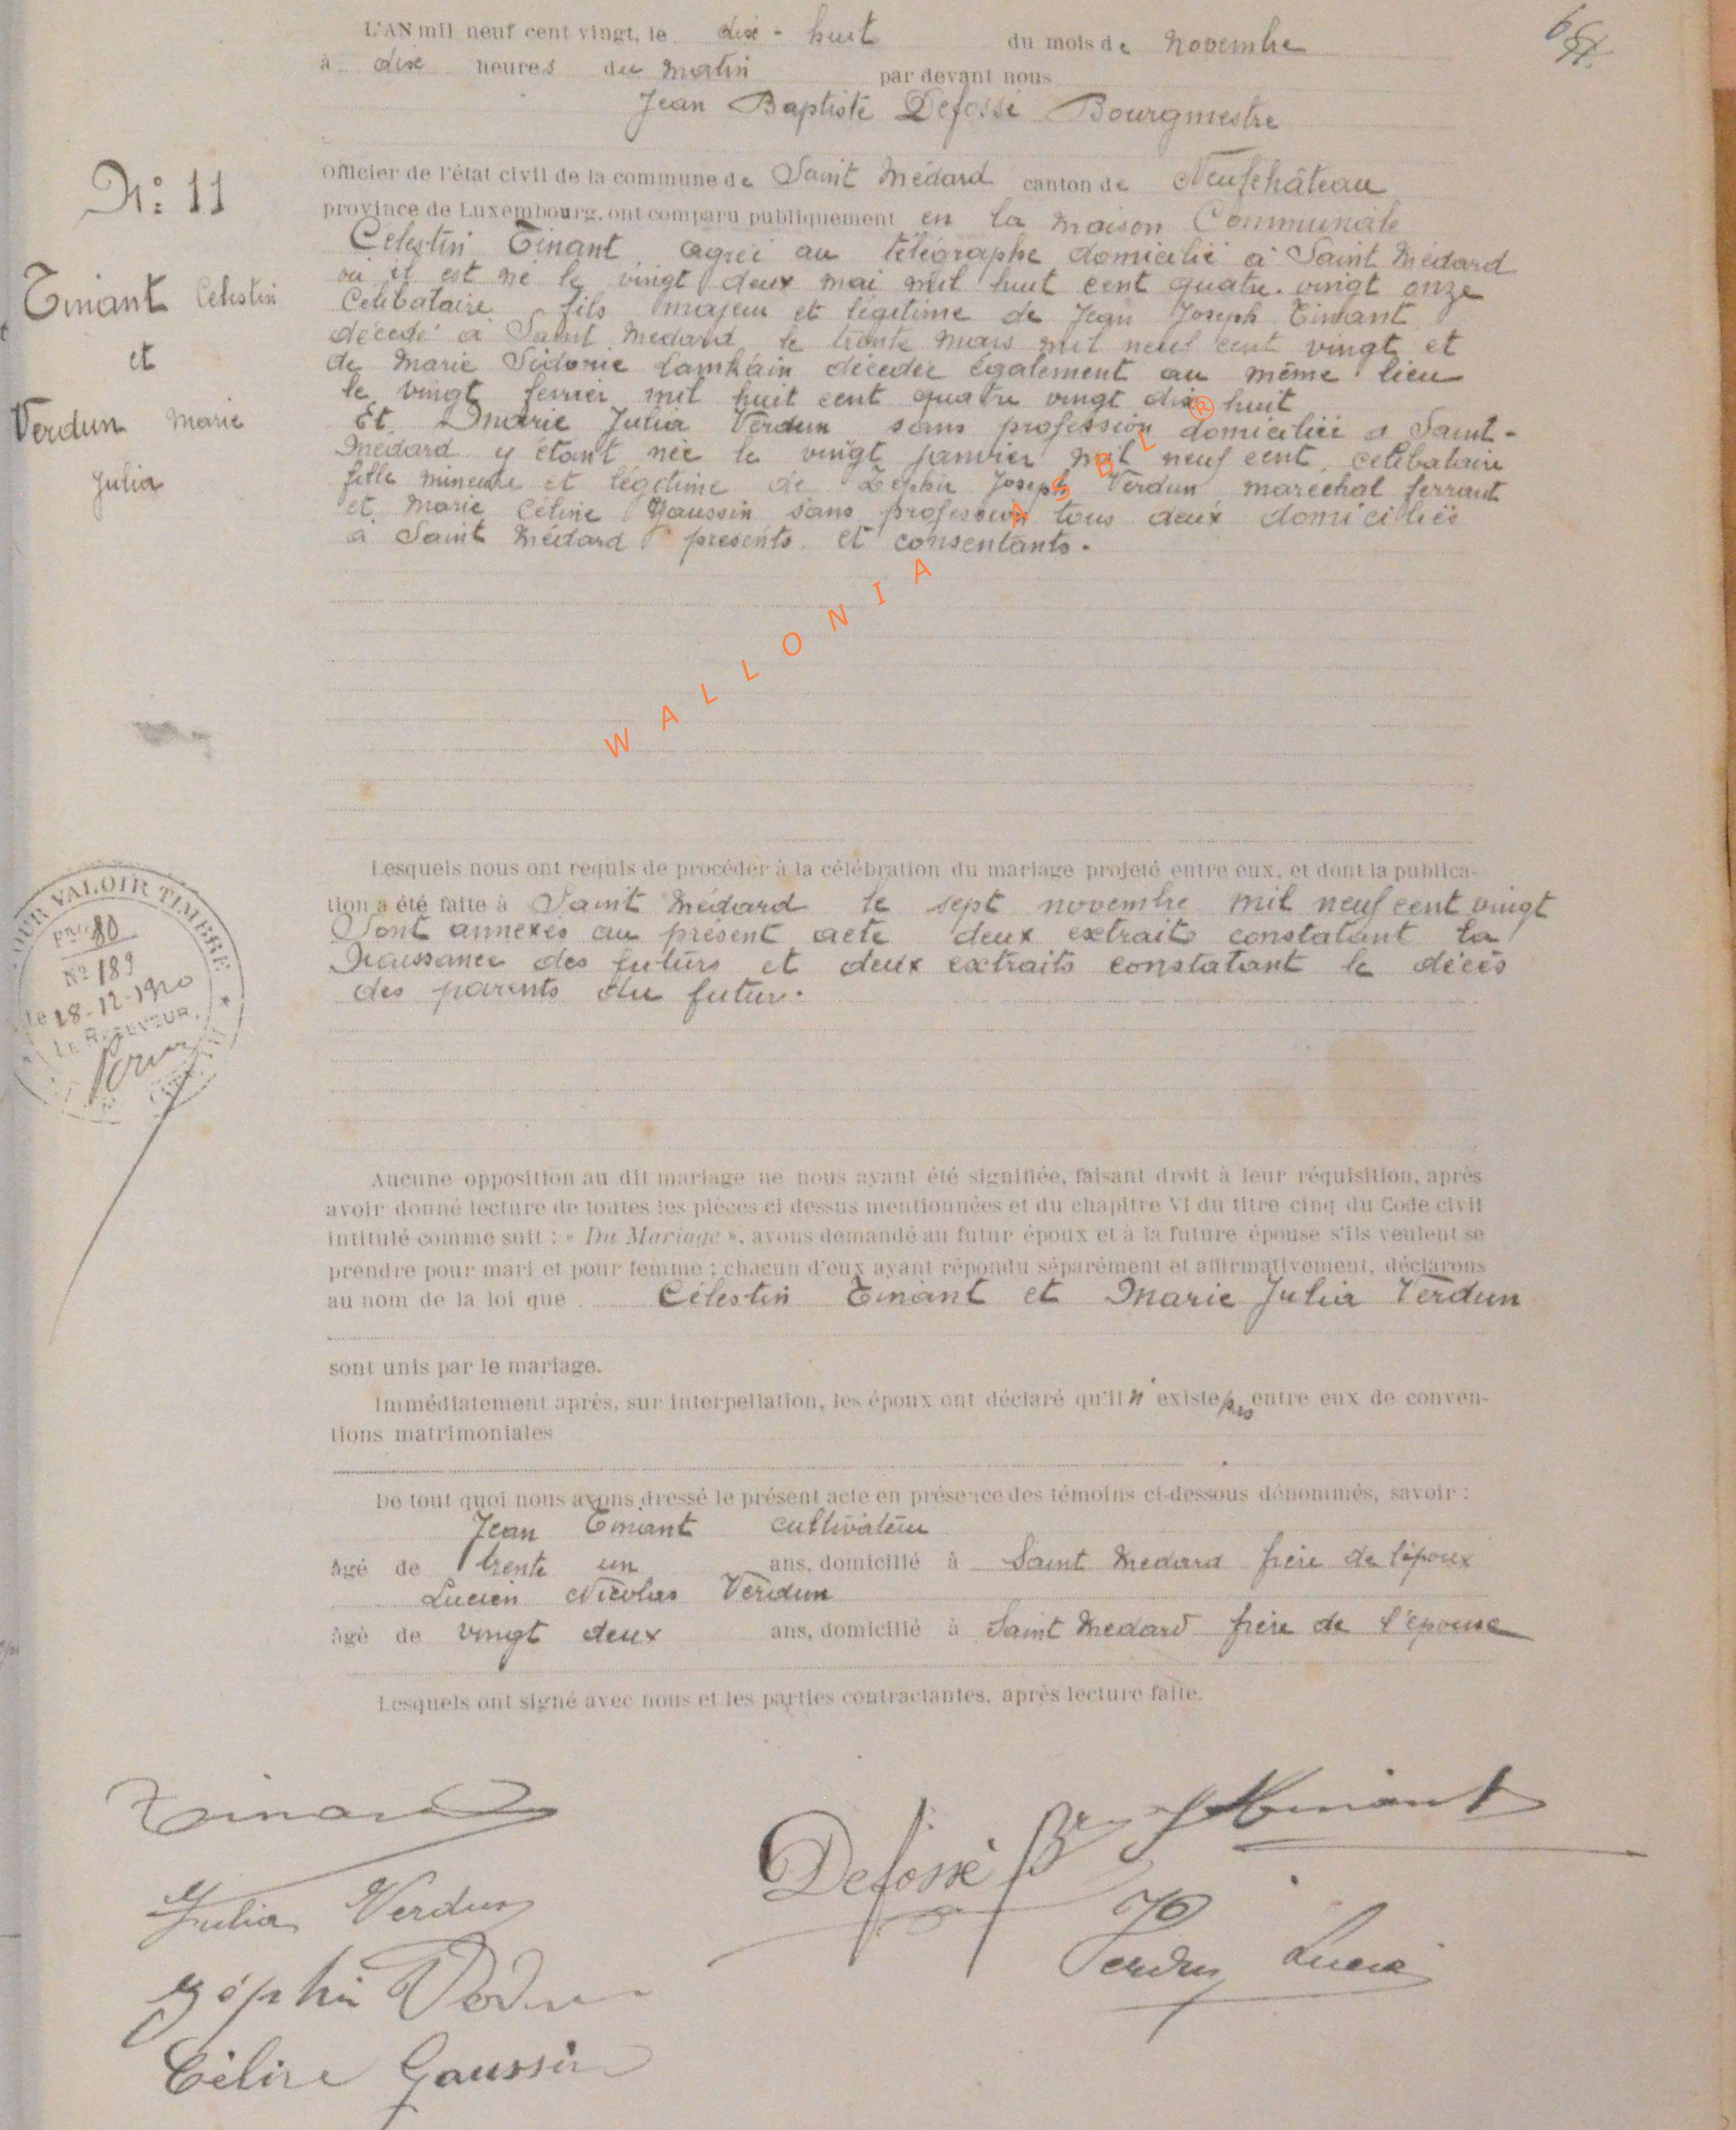 L'AN mil neuf cent vingt, le dix - huit du mois de novembre
à dix heures du matin par devant nous
Jean Baptiste Defossé Bourgmestre
N°: 11
Officier de l'état civil de la commune de Saint Médard canton de Neufchâteau
province de Luxembourg, ont comparu publiquement en la maison Communale
Célestin Tinant, agréé au télégraphe domicilié à Saint Médard
où il est né le vingt deux mai mil huit cent quatre-vingt onze
Tinant Célestin
Célibataire fils majeur et légitime de Jean Joseph Tinant
décédé à Saint Médard le trente mars mil neuf cent vingt et
et
de Marie Sidonie Lamkain décédée également au même lieu
le vingt février mil huit cent quatre vingt dix huit
Verdun Marie
Julia
Et Marie Julia Verdun sans profession domiciliée a Saint-
Médard y étant née le vingt janvier mil neuf cent, célibataire
fille mineure et légitime de Zéphir Joseph Verdun maréchal ferrant
et Marie Céline Gaussin sans profession tous deux domiciliés
à Saint Médard présents et consentants.
WALLONIA ASBL ®
Lesquels nous ont requis de procéder à la célébration du mariage projeté entre eux, et dont la publica-
tion a été faite à Saint Médard le sept novembre mil neuf cent vingt
Sont annexés au présent acte deux extraits constatant la
Naissance des futurs et deux extraits constatant le décès
des parents du futur.
POUR VALOIR TIMBRE
80
N° 189
le 18-12-1920
LE RECEVEUR,
Aucune opposition au dit mariage ne nous ayant été signifiée, faisant droit à leur réquisition, après
avoir donné lecture de toutes les pièces ci dessus mentionnées et du chapitre VI du titre cinq du Code civil
intitulé comme suit : « Du Mariage », avons demandé au futur époux et à la future épouse s'ils veulent se
prendre pour mari et pour femme ; chacun d'eux ayant répondu séparément et affirmativement, déclarons
au nom de la loi que Célestin Tinant et Marie Julia Verdun
sont unis par le mariage.
Immédiatement après, sur interpellation, les époux ont déclaré qu'il n'existe pas entre eux de conven-
tions matrimoniales
De tout quoi nous avons dressé le présent acte en présence des témoins ci-dessous dénommés, savoir :
Jean Tinant cultivateur
âgé de trente un ans, domicilié à Saint Médard frère de l'époux
Lucien Nicolas Verdun
âgé de vingt deux ans, domicilié à Saint Médard frère de l'épouse
Lesquels ont signé avec nous et les parties contractantes, après lecture faite.
Tinant
Julia Verdun
Defossé
Verdun Lucien
Zéphir Verdun
Céline Gaussin